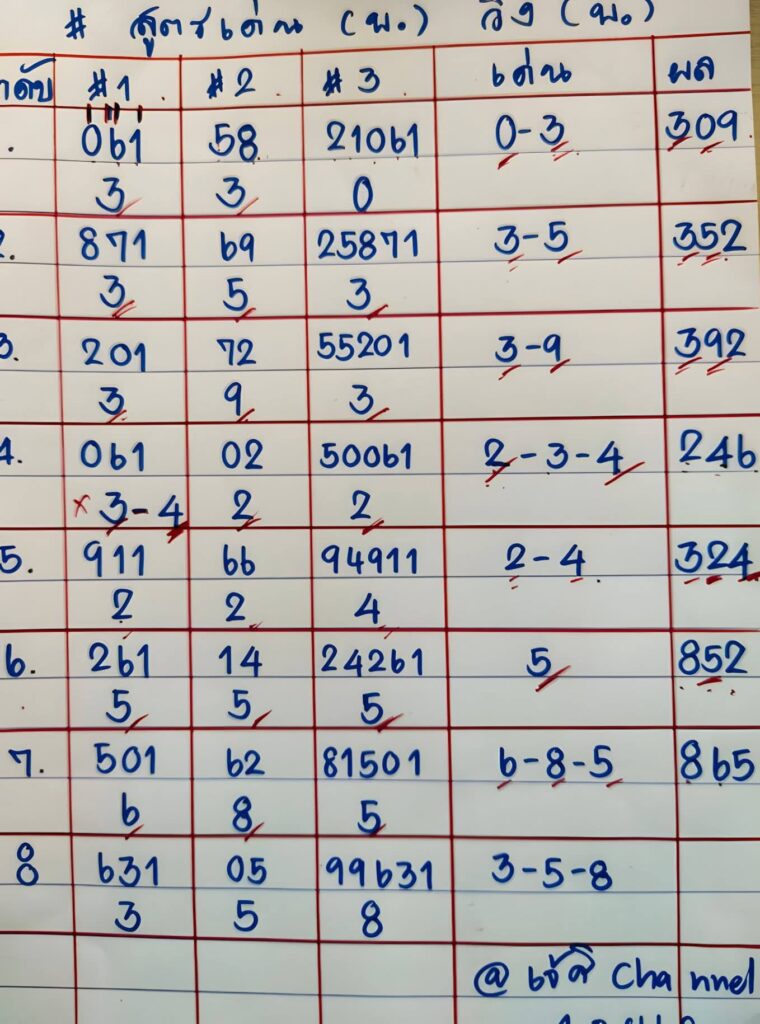 # สูตรเด่น (พ.) วิ่ง (พ.)
#1 #2 #3 เด่น ผล
061 58 21061 0-3 309
3 3 0
2. 871 69 25871 3-5 352
3 5 3
3. 201 72 55201 3-9 392
3 9 3
4. 061 02 50061 2-3-4 246
× 3-4 2 2
5. 911 66 94911 2-4 324
2 2 4
6. 261 14 24261 5 852
5 5 5
7. 501 62 81501 6-8-5 865
6 8 5
8 631 05 99631 3-5-8
3 5 8
@ Channel